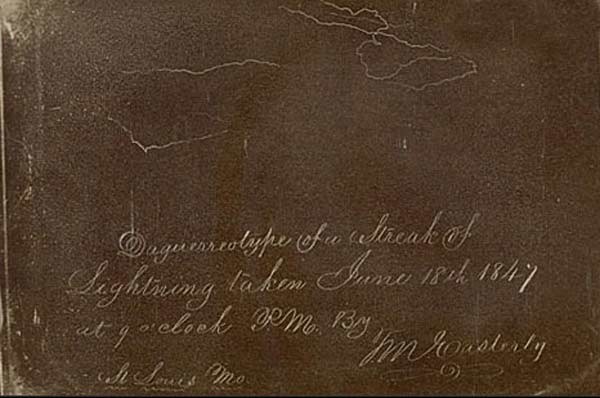 Daguerreotype of a Streak of
Lightning taken June 18th 1847
at 9 o'clock P.M. By
TM Easterly
St Louis Mo.